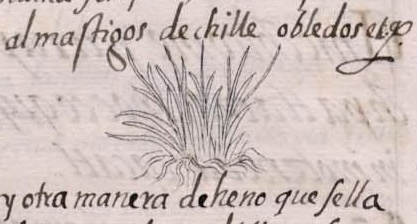 almastigos de chille obledos etc.
y otra manera de heno que se lla